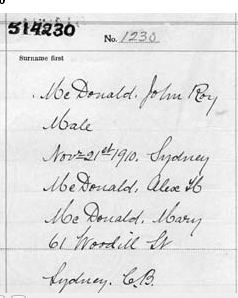 514230
No. 1230
Surname first
McDonald, John Roy
Male
Nov 21st 1910. Sydney
McDonald, Alex H
McDonald, Mary
61 Woodill St
Sydney. C.B.